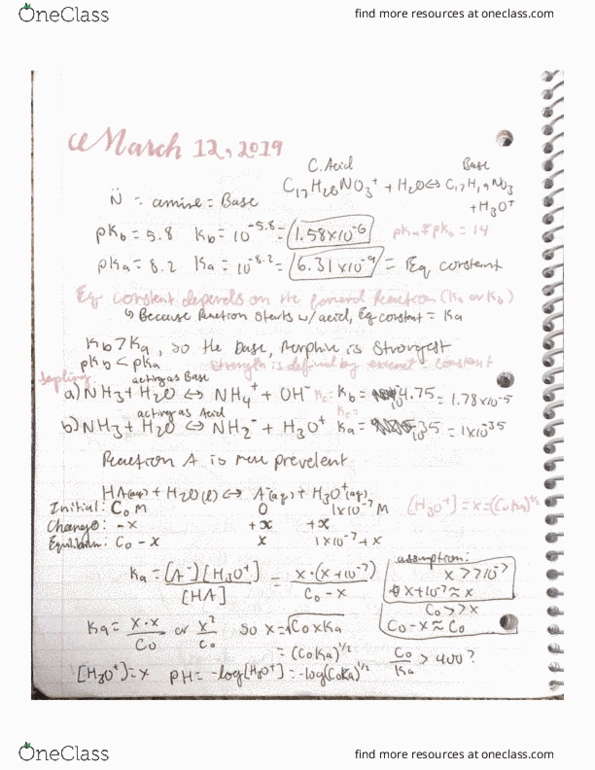 OneClass
find more resources at oneclass.com
March 12, 2019
C. Acid Base
C₁₇H₂₀NO₃⁺ + H₂O ⇔ C₁₇H₁₉NO₃
+ H₃O⁺
N̈ = amine = Base
pKb = 5.8 Kb = 10^-5.8 = 1.58x10^-6 pKa + pKb = 14
pKa = 8.2 Ka = 10^-8.2 = 6.31x10^-9 = Eq constant
Eq constant depends on the forward Reaction (Ka or Kb)
↳ Because Reaction starts w/ acid, Eq constant = Ka
Kb > Ka, so the base, Morphine is strongest
pKb < pKa strength is defined by constant
Sapling
acting as Base
a) NH₃ + H₂O ⇔ NH₄⁺ + OH⁻ Kc= Kb = 10^-4.75 = 1.78x10^-5
acting as Acid Kc=
b) NH₃ + H₂O ⇔ NH₂⁻ + H₃O⁺ Ka = 10^-35 = 1x10^-35
Reaction A is prevelent
HA(aq) + H₂O(l) ⇔ A⁻(aq) + H₃O⁺(aq)
Initial: C₀ M 0 1x10^-7 M [H₃O⁺] = x = (C₀Ka)^1/2
Change: -x +x +x
Equilibrium: C₀ - x x 1x10^-7 + x
Ka = [A⁻][H₃O⁺] / [HA] = x·(x+10^-7) / C₀ - x
assumption:
x >> 10^-7
x+10^-7 ≈ x
C₀ >> x
C₀ - x ≈ C₀
Ka = x·x / C₀ or x² / C₀ so x = √C₀xKa
= (C₀Ka)^1/2 C₀/Ka > 400?
[H₃O⁺] = x pH = -log[H₃O⁺] = -log(C₀Ka)^1/2
OneClass
find more resources at oneclass.com